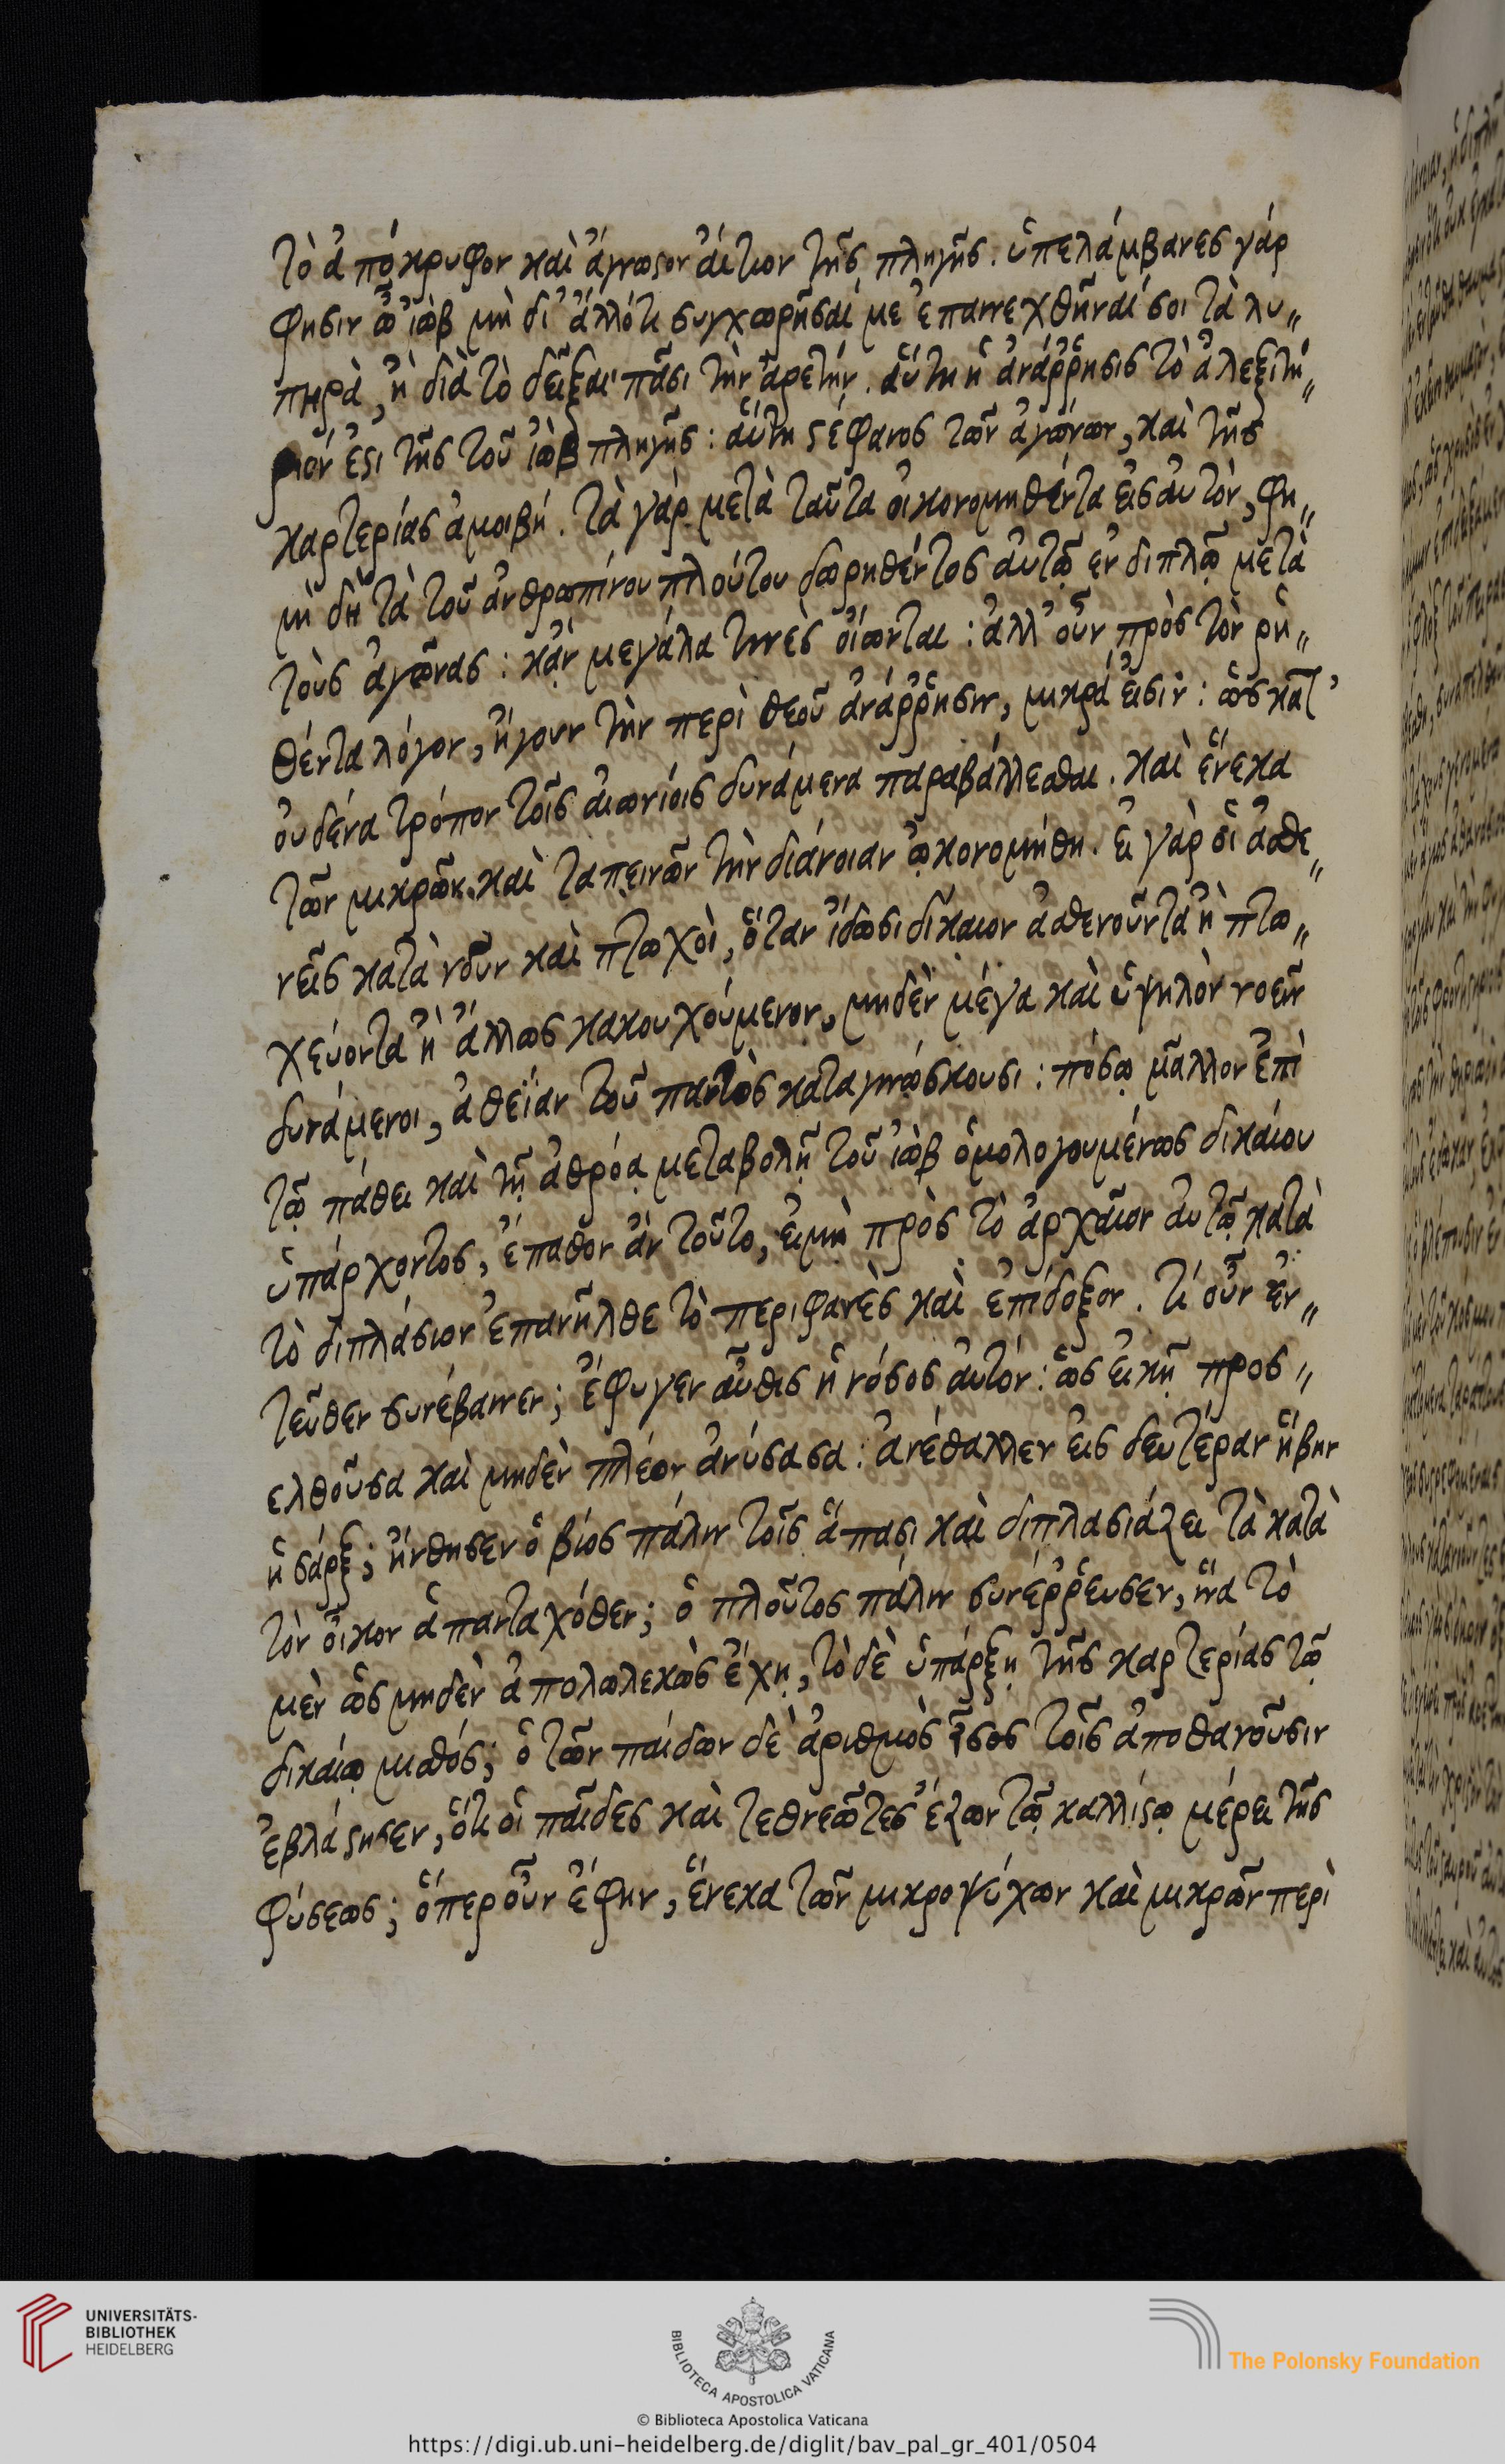 τὸ ἀπόκρυφον καὶ ἄγνωστον αἴτιον τῆς πληγῆς. ὑπελάμβανες γάρ
φησιν ὦ ἰὼβ μὴ δι᾽ ἄλλό τι συγχωρῆσαί με ἐπανεχθῆναί σοι τὰ λυ„
πηρὰ, ἢ διὰ τὸ δεῖξαι πᾶσι τὴν ἀρετήν. αὕτη ἡ ἀνάῤῥησις τὸ ἀλεξιτή„
ριόν ἐστι τῆς τοῦ ἰὼβ πληγῆς: αὕτη στέφανος τῶν ἀγώνων, καὶ τῆς
καρτερίας ἀμοιβή. τὰ γάρ μετὰ ταῦτα οἰκονομηθέντα εἰς αὐτὸν, φη„
μὶ δὴ τὰ τοῦ ἀνθρωπίνου πλούτου δωρηθέντος αὐτῷ ἐν διπλῷ μετὰ
τοὺς ἀγῶνας: κἂν μεγάλα τινὲς οἴωνται: ἀλλ᾽ οὖν πρὸς τὸν ῥη„
θέντα λόγον, ἤγουν τὴν περὶ θεοῦ ἀνάῤῥησιν, μικρά εἰσιν: ὡς κατ᾽
οὐδένα τρόπον τοῖς αἰωνίοις δυνάμενα παραβάλλεσθαι. καὶ ἕνεκα
τῶν μικρῶν καὶ ταπεινῶν τὴν διάνοιαν ᾠκονομήθη. εἰ γὰρ οἱ ἀσθε„
νεῖς κατὰ νοῦν καὶ πτωχοὶ, ὅταν ἴδωσι δίκαιον ἀσθενοῦντα ἢ πτω„
χεύοντα ἢ ἄλλως κακουχούμενον, μηδὲν μέγα καὶ ὑψηλὸν νοεῖν
δυνάμενοι, ἀθεΐαν τοῦ παντὸς καταγινώσκουσι: πόσῳ μᾶλλον ἐπὶ
τῷ πάθει καὶ τῇ ἀθρόᾳ μεταβολῇ τοῦ ἰὼβ ὁμολογουμένως δικαίου
ὑπάρχοντος, ἔπαθον ἂν τοῦτο, εἰ μὴ πρὸς τὸ ἀρχαῖον αὐτῷ κατὰ
τὸ διπλάσιον ἐπανῆλθε τὸ περιφανὲς καὶ ἐπίδοξον. τί οὖν ἐν„
τεῦθεν συνέβαινεν; ἔφυγεν αὖθις ἡ νόσος αὐτόν: ὡς εἰκῇ προσ„
ελθοῦσα καὶ μηδὲν πλέον ἀνύσασα: ἀνέθαλλεν εἰς δευτέραν ἥβην
ἡ σάρξ; ἤνθησεν ὁ βίος πάλιν τοῖς ἅπασι καὶ διπλασιάζει τὰ κατὰ
τὸν οἶκον ἁπανταχόθεν; ὁ πλοῦτος πάλιν συνέῤῥευσεν, ἵνα τὸ
μὲν ὡς μηδὲν ἀπολωλεκὼς ἔχῃ, τὸ δὲ ὑπάρξῃ τῆς καρτερίας τῷ
δικαίῳ μισθός; ὁ τῶν παίδων δὲ ἀριθμὸς ἶσος τοῖς ἀποθανοῦσιν
ἐβλάστησεν, ὅτι οἱ παῖδες καὶ τεθνεῶτες ἔζων τῷ καλλίστῳ μέρει τῆς
φύσεως; ὅπερ οὖν ἔφην, ἕνεκα τῶν μικροψύχων καὶ μικρῶν περὶ
UNIVERSITÄTS-
BIBLIOTHEK
HEIDELBERG
BIBLIOTECA APOSTOLICA VATICANA
The Polonsky Foundation
© Biblioteca Apostolica Vaticana
https://digi.ub.uni-heidelberg.de/diglit/bav_pal_gr_401/0504